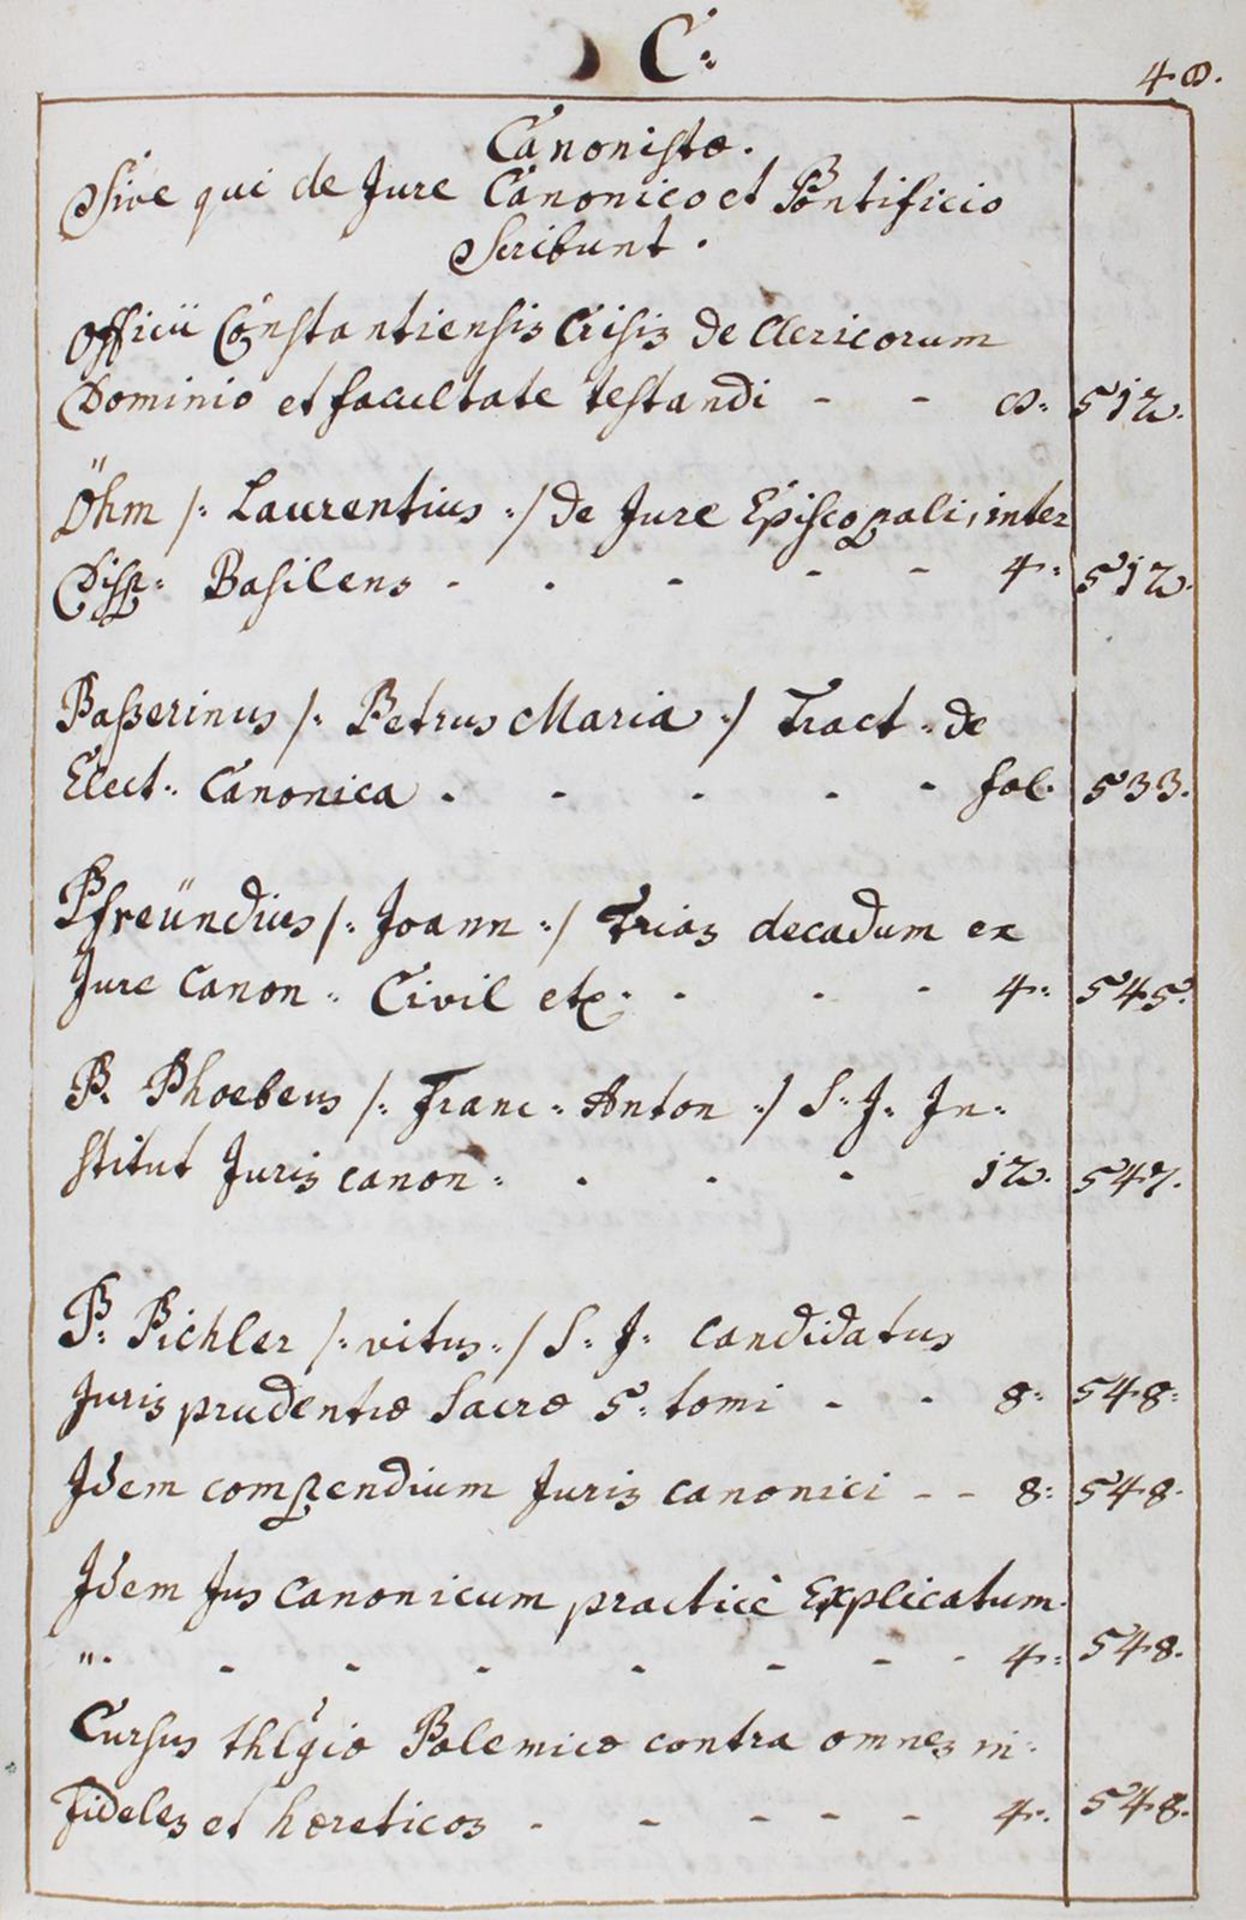 C:
48.
Canonistæ.
Sive qui de Jure Canonico et Pontificio
Scribunt.
Officii Constantiensis Crisis de Clericorum
Dominio et facultate testandi - - 8: 512.
Öhm /: Laurentius :/ de Jure Episcopali, inter
Disp: Basilens - - - - - 4: 512.
Paßerinus /: Petrus Maria :/ Tract: de
Elect: Canonica - - - - - fol. 533.
Pfreündius /: Joann :/ Trias decadum ex
Jure Canon: Civil etc: - - - 4: 545.
P. Phoebeus /: Franc: Anton :/ S: J: In-
stitut Juris canon: - - - 12. 547.
P: Pichler /: vitus :/ S: J: Candidatus
Juris prudentiæ Sacræ 5: tomi - - 8: 548:
Idem compendium Juris canonici - - 8: 548.
Idem Jus Canonicum practicè Explicatum.
". - - - - - - - 4: 548.
Cursus thlgiæ Polemicæ contra omnes in:
fideles et hæreticos - - - - - 4: 548.